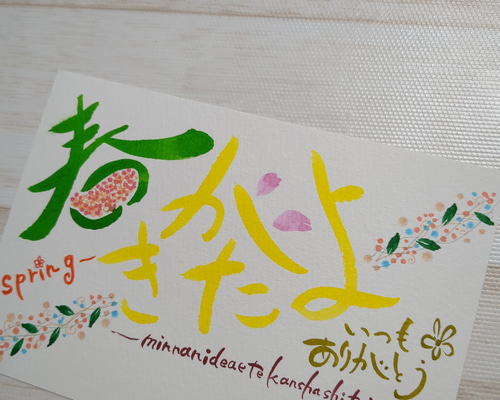 春がきたよ
spring~
いつも
ありがとう
minnanideaetekanshashite